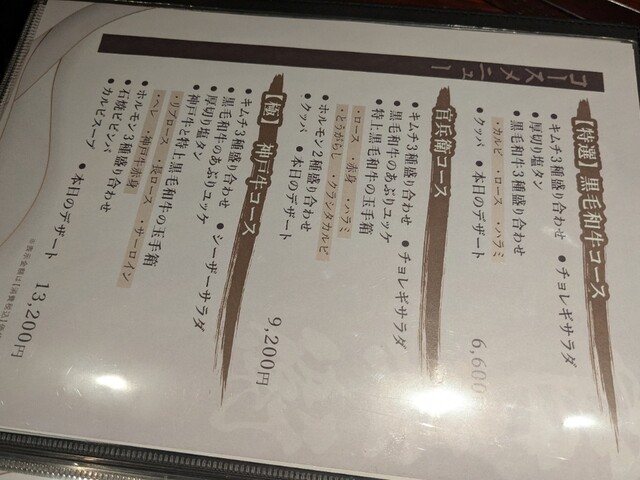 コースメニュー
【特選】黒毛和牛コース
●キムチ3種盛り合わせ ●チョレギサラダ
●厚切り塩タン
●黒毛和牛3種盛り合わせ
・カルビ ・ロース ・ハラミ
●クッパ ●本日のデザート
6,600
官兵衛コース
●キムチ3種盛り合わせ ●チョレギサラダ
●黒毛和牛のあぶりユッケ
●特上黒毛和牛の玉手箱
・ロース ・赤身 ・ハラミ
・とうがらし ・クラシタカルビ
●ホルモン2種盛り合わせ
●クッパ ●本日のデザート
9,200円
【極】神戸牛コース
●キムチ3種盛り合わせ ●シーザーサラダ
●黒毛和牛のあぶりユッケ
●厚切り塩タン
●神戸牛と特上黒毛和牛の玉手箱
・リブロース ・長ロース ・サーロイン
・ヘレ ・神戸牛赤身
●ホルモン3種盛り合わせ
●石焼ビビンバ
●カルビスープ ●本日のデザート
13,200円